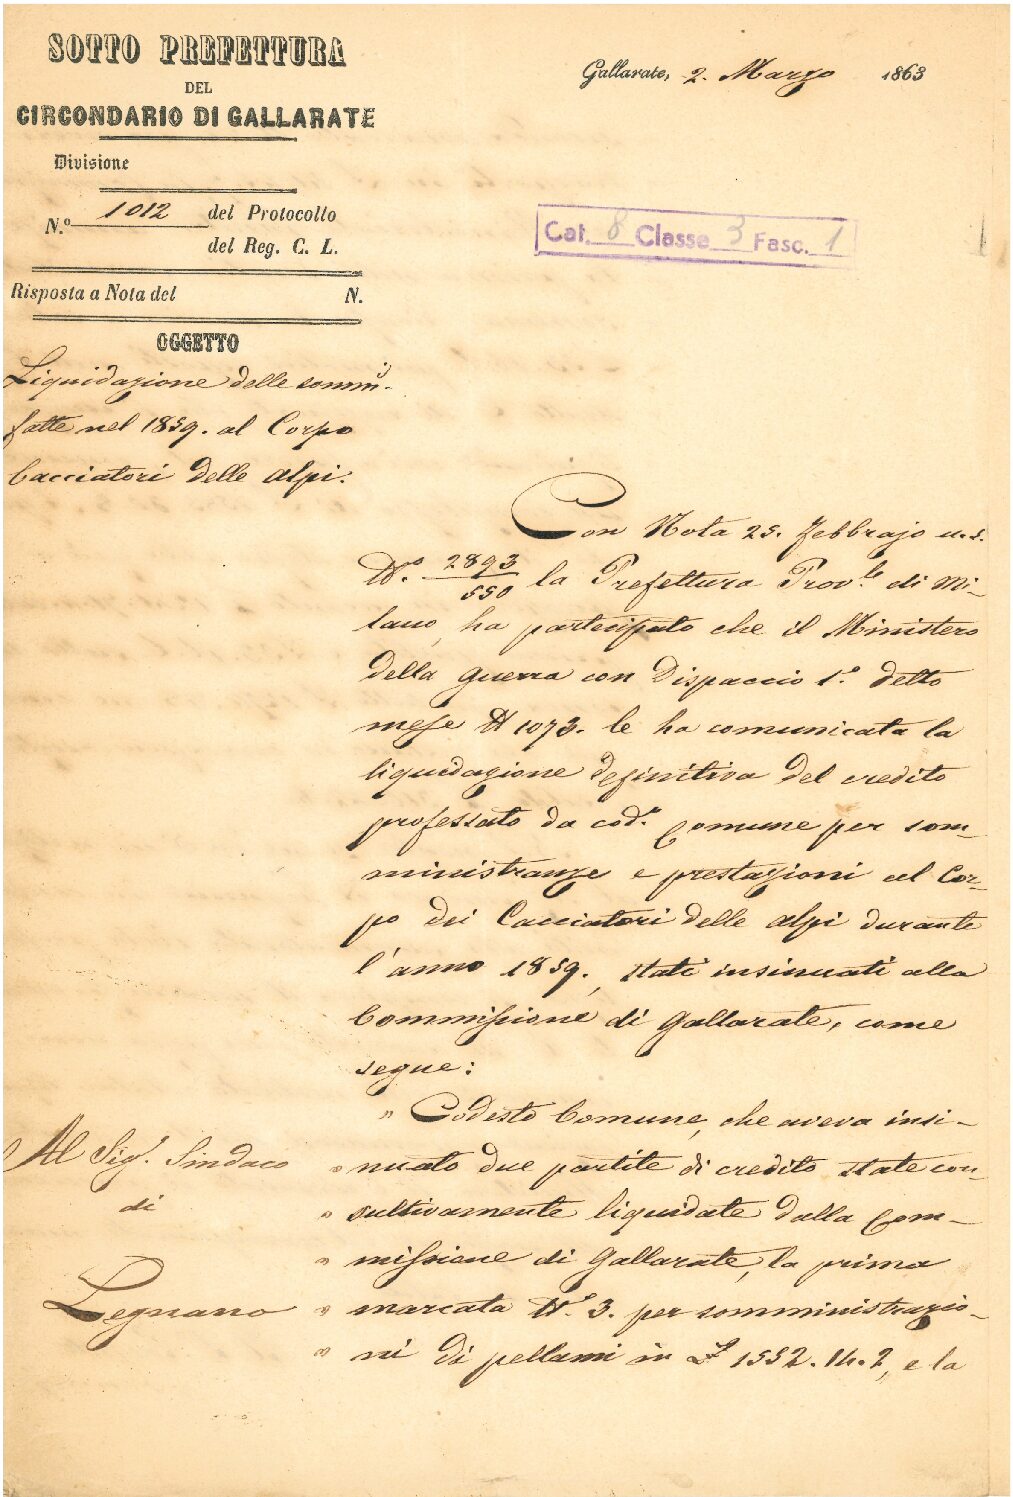 SOTTO PREFETTURA
DEL
CIRCONDARIO DI GALLARATE
Divisione
N.º 1012 del Protocollo
del Reg. C. L.
Risposta a Nota del N.
OGGETTO
Liquidazione delle somm.i
fatte nel 1859. al Corpo
Cacciatori delle Alpi.
Gallarate, 2. Marzo 1863
Cat. 8 Classe 3 Fasc. 1
Con Nota 25. Febbrajo u.s.
N.º 2893/550 la Prefettura Prov.le di Mi-
lano, ha partecipato che il Ministero
della Guerra con Dispaccio 1.º detto
mese N 1073. le ha comunicata la
liquidazione definitiva del credito
professato da cod.º Comune per som-
ministranze e prestazioni al Cor-
po dei Cacciatori delle Alpi durante
l'anno 1859., stati insinuati alla
Commissione di Gallarate, come
segue:
" Codesto Comune, che aveva insi-
" nuato due partite di credito state con-
" sultivamente liquidate dalla Com-
" missione di Gallarate, la prima
" marcata N.º 3. per somministrazio-
" ni di pellami in £ 1552. 14. 2, e la
Al Sig.r Sindaco
di
Legnano